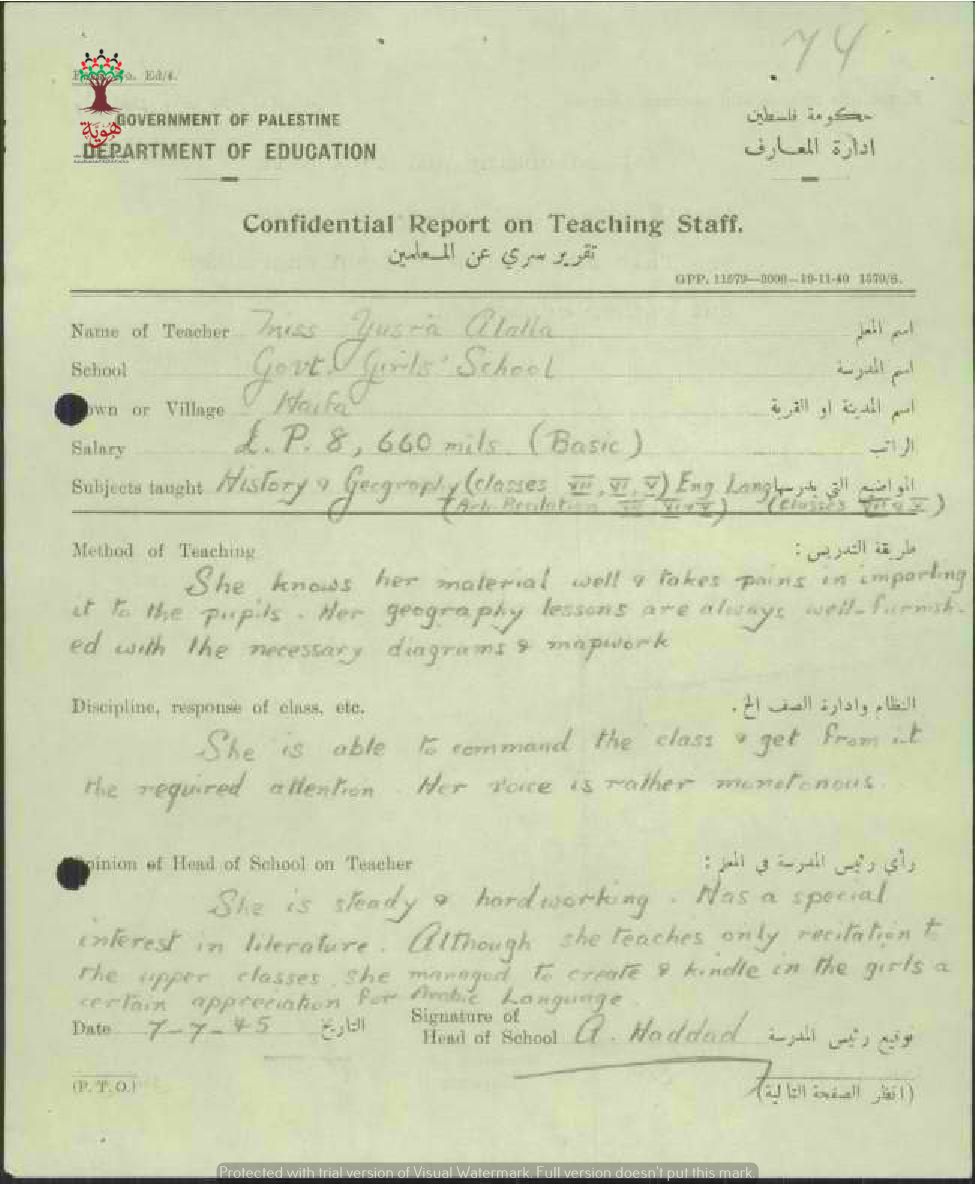 74
o. Ed/4.
هوية
GOVERNMENT OF PALESTINE
حكومة فلسطين
DEPARTMENT OF EDUCATION
ادارة المعارف
Confidential Report on Teaching Staff.
تقرير سري عن المعلمين
GPP. 11579—3000—19-11-40 1579/S.
Name of Teacher Miss Yusra Alalla اسم المعلم
School Govt. Girls' School اسم المدرسة
own or Village Haifa اسم المدينة او القرية
Salary £. P. 8, 660 mils (Basic) الراتب
Subjects taught History & Geography (classes VII, VI, V) Eng Lang المواضيع التي يدرسها
(Arb. Recitation VII VI & V) (classes VII & V)
Method of Teaching طريقة التدريس :
She knows her material well & takes pains in imparting
it to the pupils. Her geography lessons are always well-furnish-
ed with the necessary diagrams & mapwork
Discipline, response of class, etc. النظام وادارة الصف الخ .
She is able to command the class & get from it
the required attention. Her voice is rather monotonous.
pinion of Head of School on Teacher رأي رئيس المدرسة في المعلم :
She is steady & hardworking. Has a special
interest in literature. Although she teaches only recitation to
the upper classes she managed to create & kindle in the girls a
certain appreciation for Arabic Language.
Date 7-7-45 التاريخ
Signature of
Head of School A. Haddad توقيع رئيس المدرسة
(P. T. O.)
(انظر الصفحة التالية)
Protected with trial version of Visual Watermark. Full version doesn't put this mark.